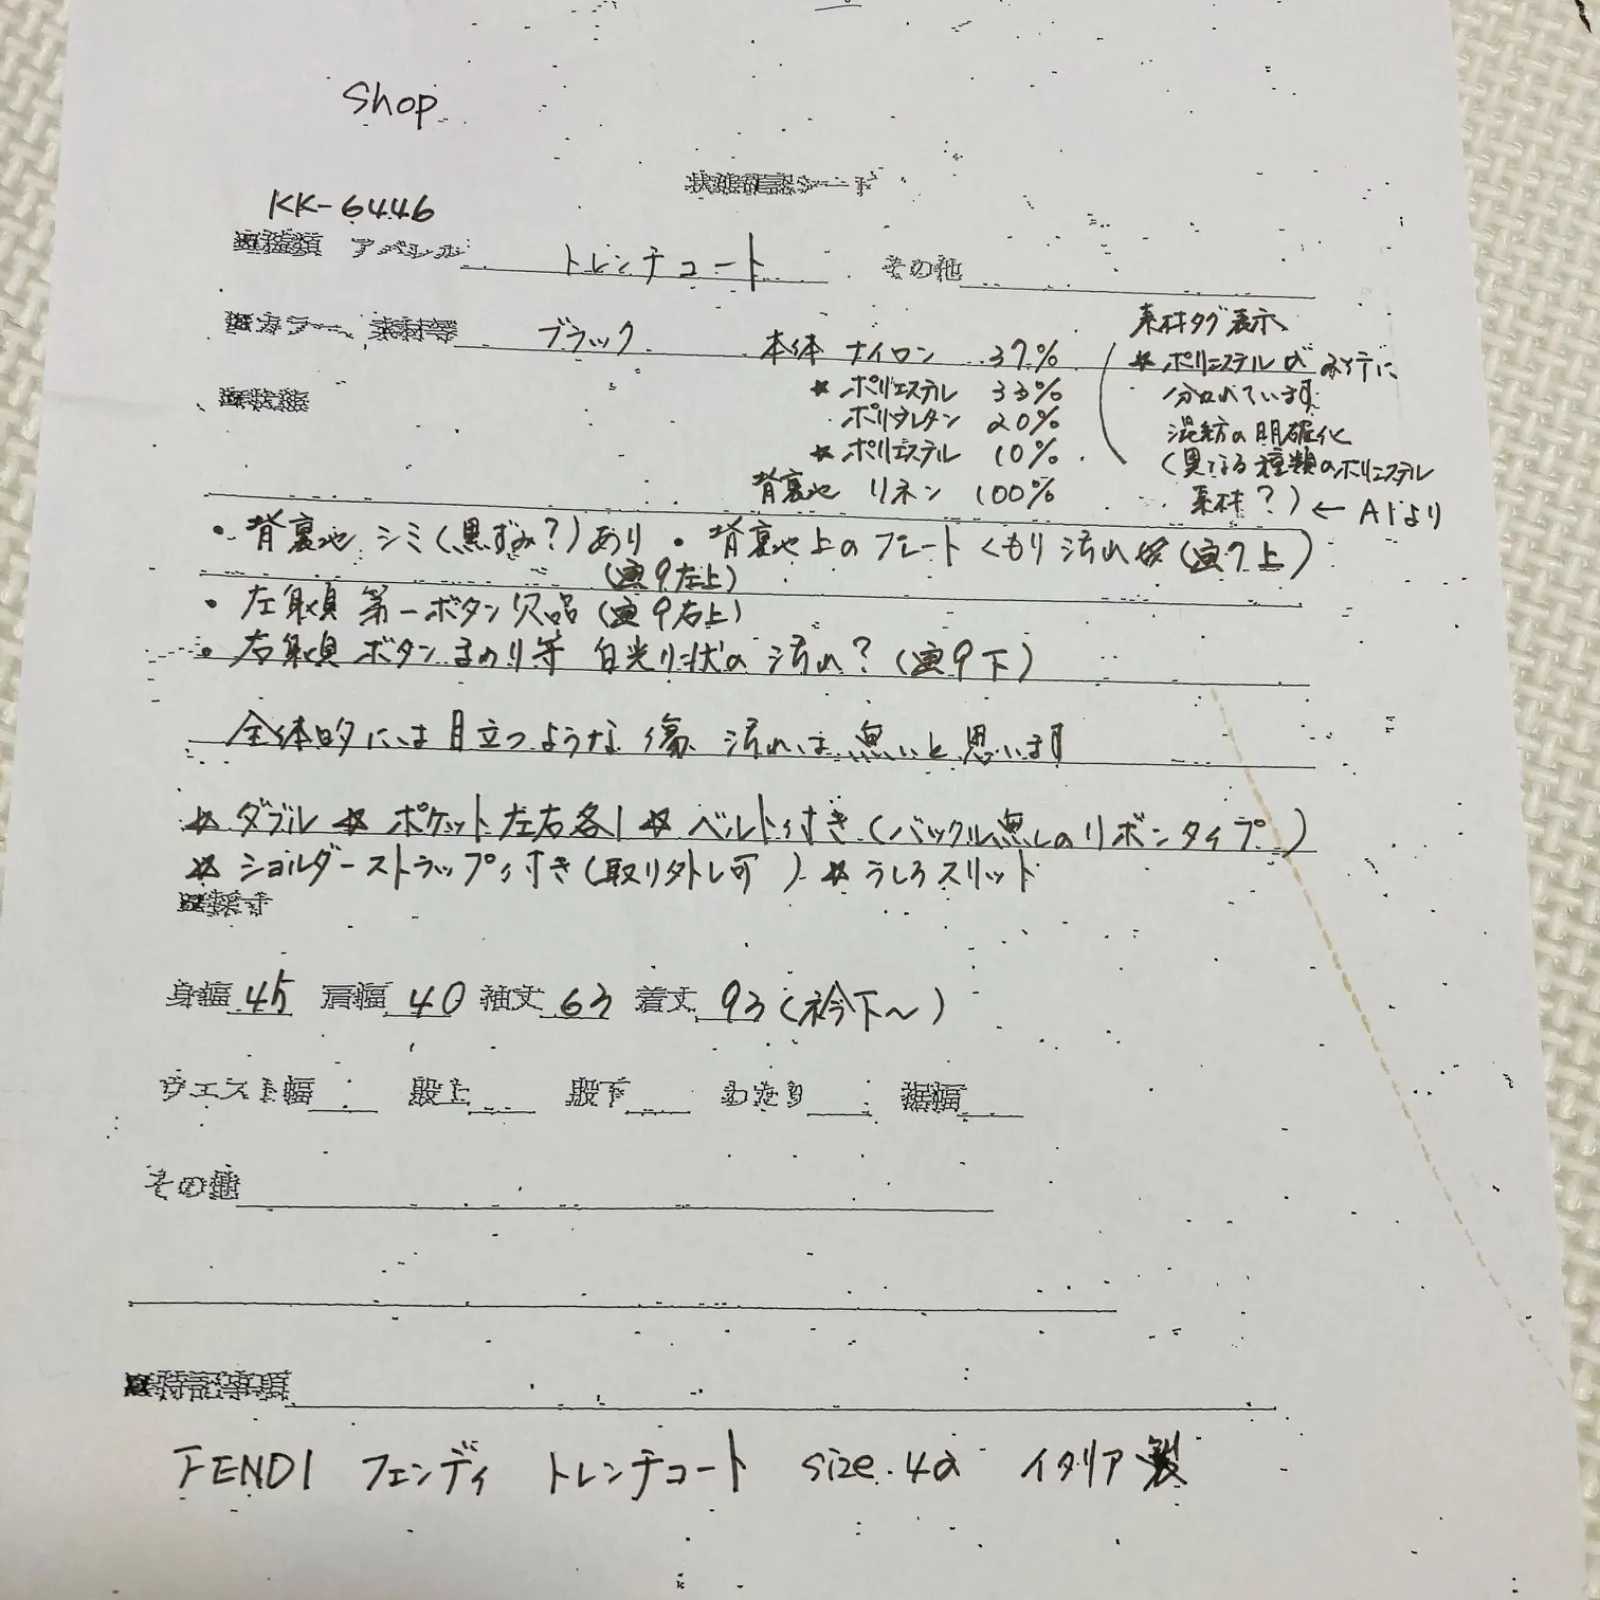 Shop
状態確認シート
KK-6446
■種類 アパレル トレンチコート その他
■カラー、素材等 ブラック 本体 ナイロン 37% 素材タグ表示
★ポリエステル 33% ★ポリエステルが2行に
■状態 ポリウレタン 20% 分かれています
★ポリエステル 10% 混紡の明確化
背裏地 リネン 100% (異なる種類のポリエステル
素材?)← AIより
・背裏地 シミ(黒ずみ?)あり ・背裏地上のプレート くもり 汚れ(画7上)
(画9左上)
・左 第一ボタン欠品(画9右上)
・右 ボタンまわり等 白光り状の汚れ?(画9下)
全体的には目立つような傷、汚れは無いと思います
★ダブル ★ポケット左右各1 ★ベルト付き(バックル無しのリボンタイプ)
★ショルダーストラップ付き(取り外し可) ★うしろスリット
■採寸
身幅 45 肩幅 40 袖丈 63 着丈 93(衿下〜)
ウエスト幅 股上 股下 わたり 裾幅
その他
■特記事項
FENDI フェンディ トレンチコート size.42 イタリア製